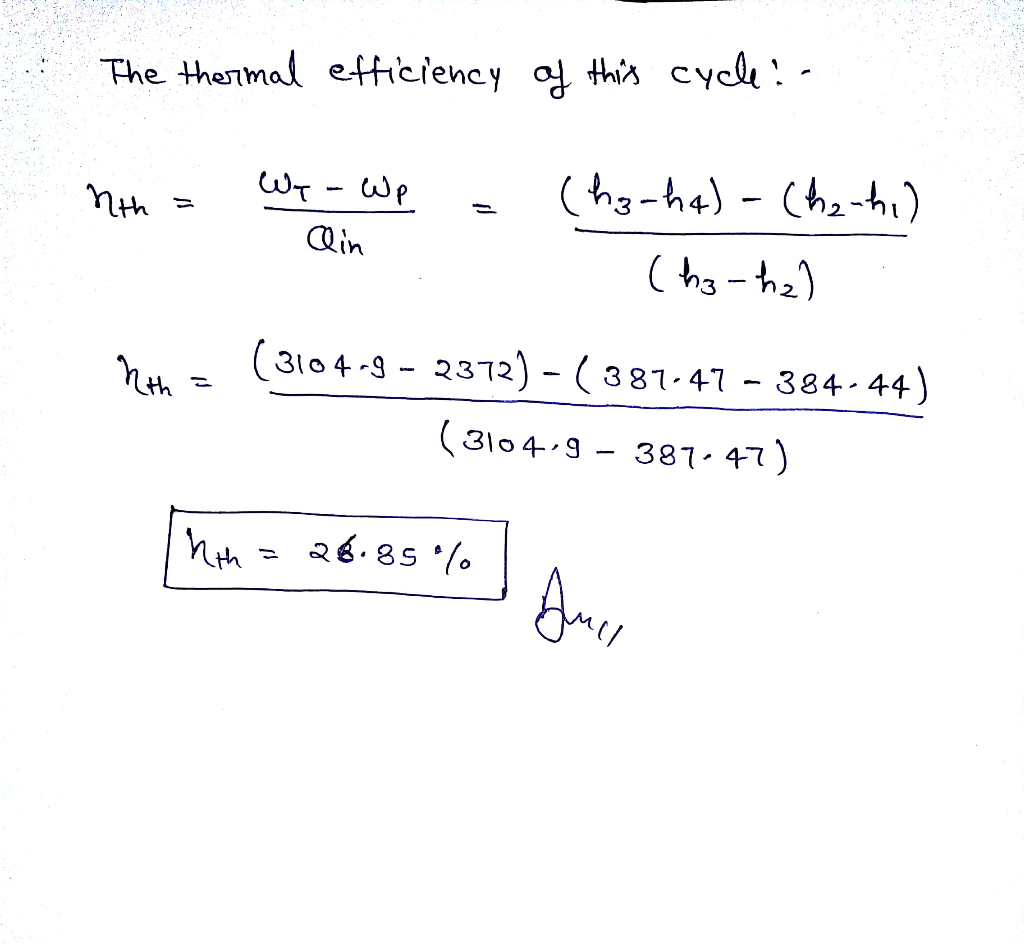 ∴ The thermal efficiency of this cycle:-
ηth = (WT - WP) / Qin = ((h3-h4) - (h2-h1)) / (h3-h2)
ηth = ((3104.9 - 2372) - (387.47 - 384.44)) / (3104.9 - 387.47)
ηth = 26.85 %
Ans